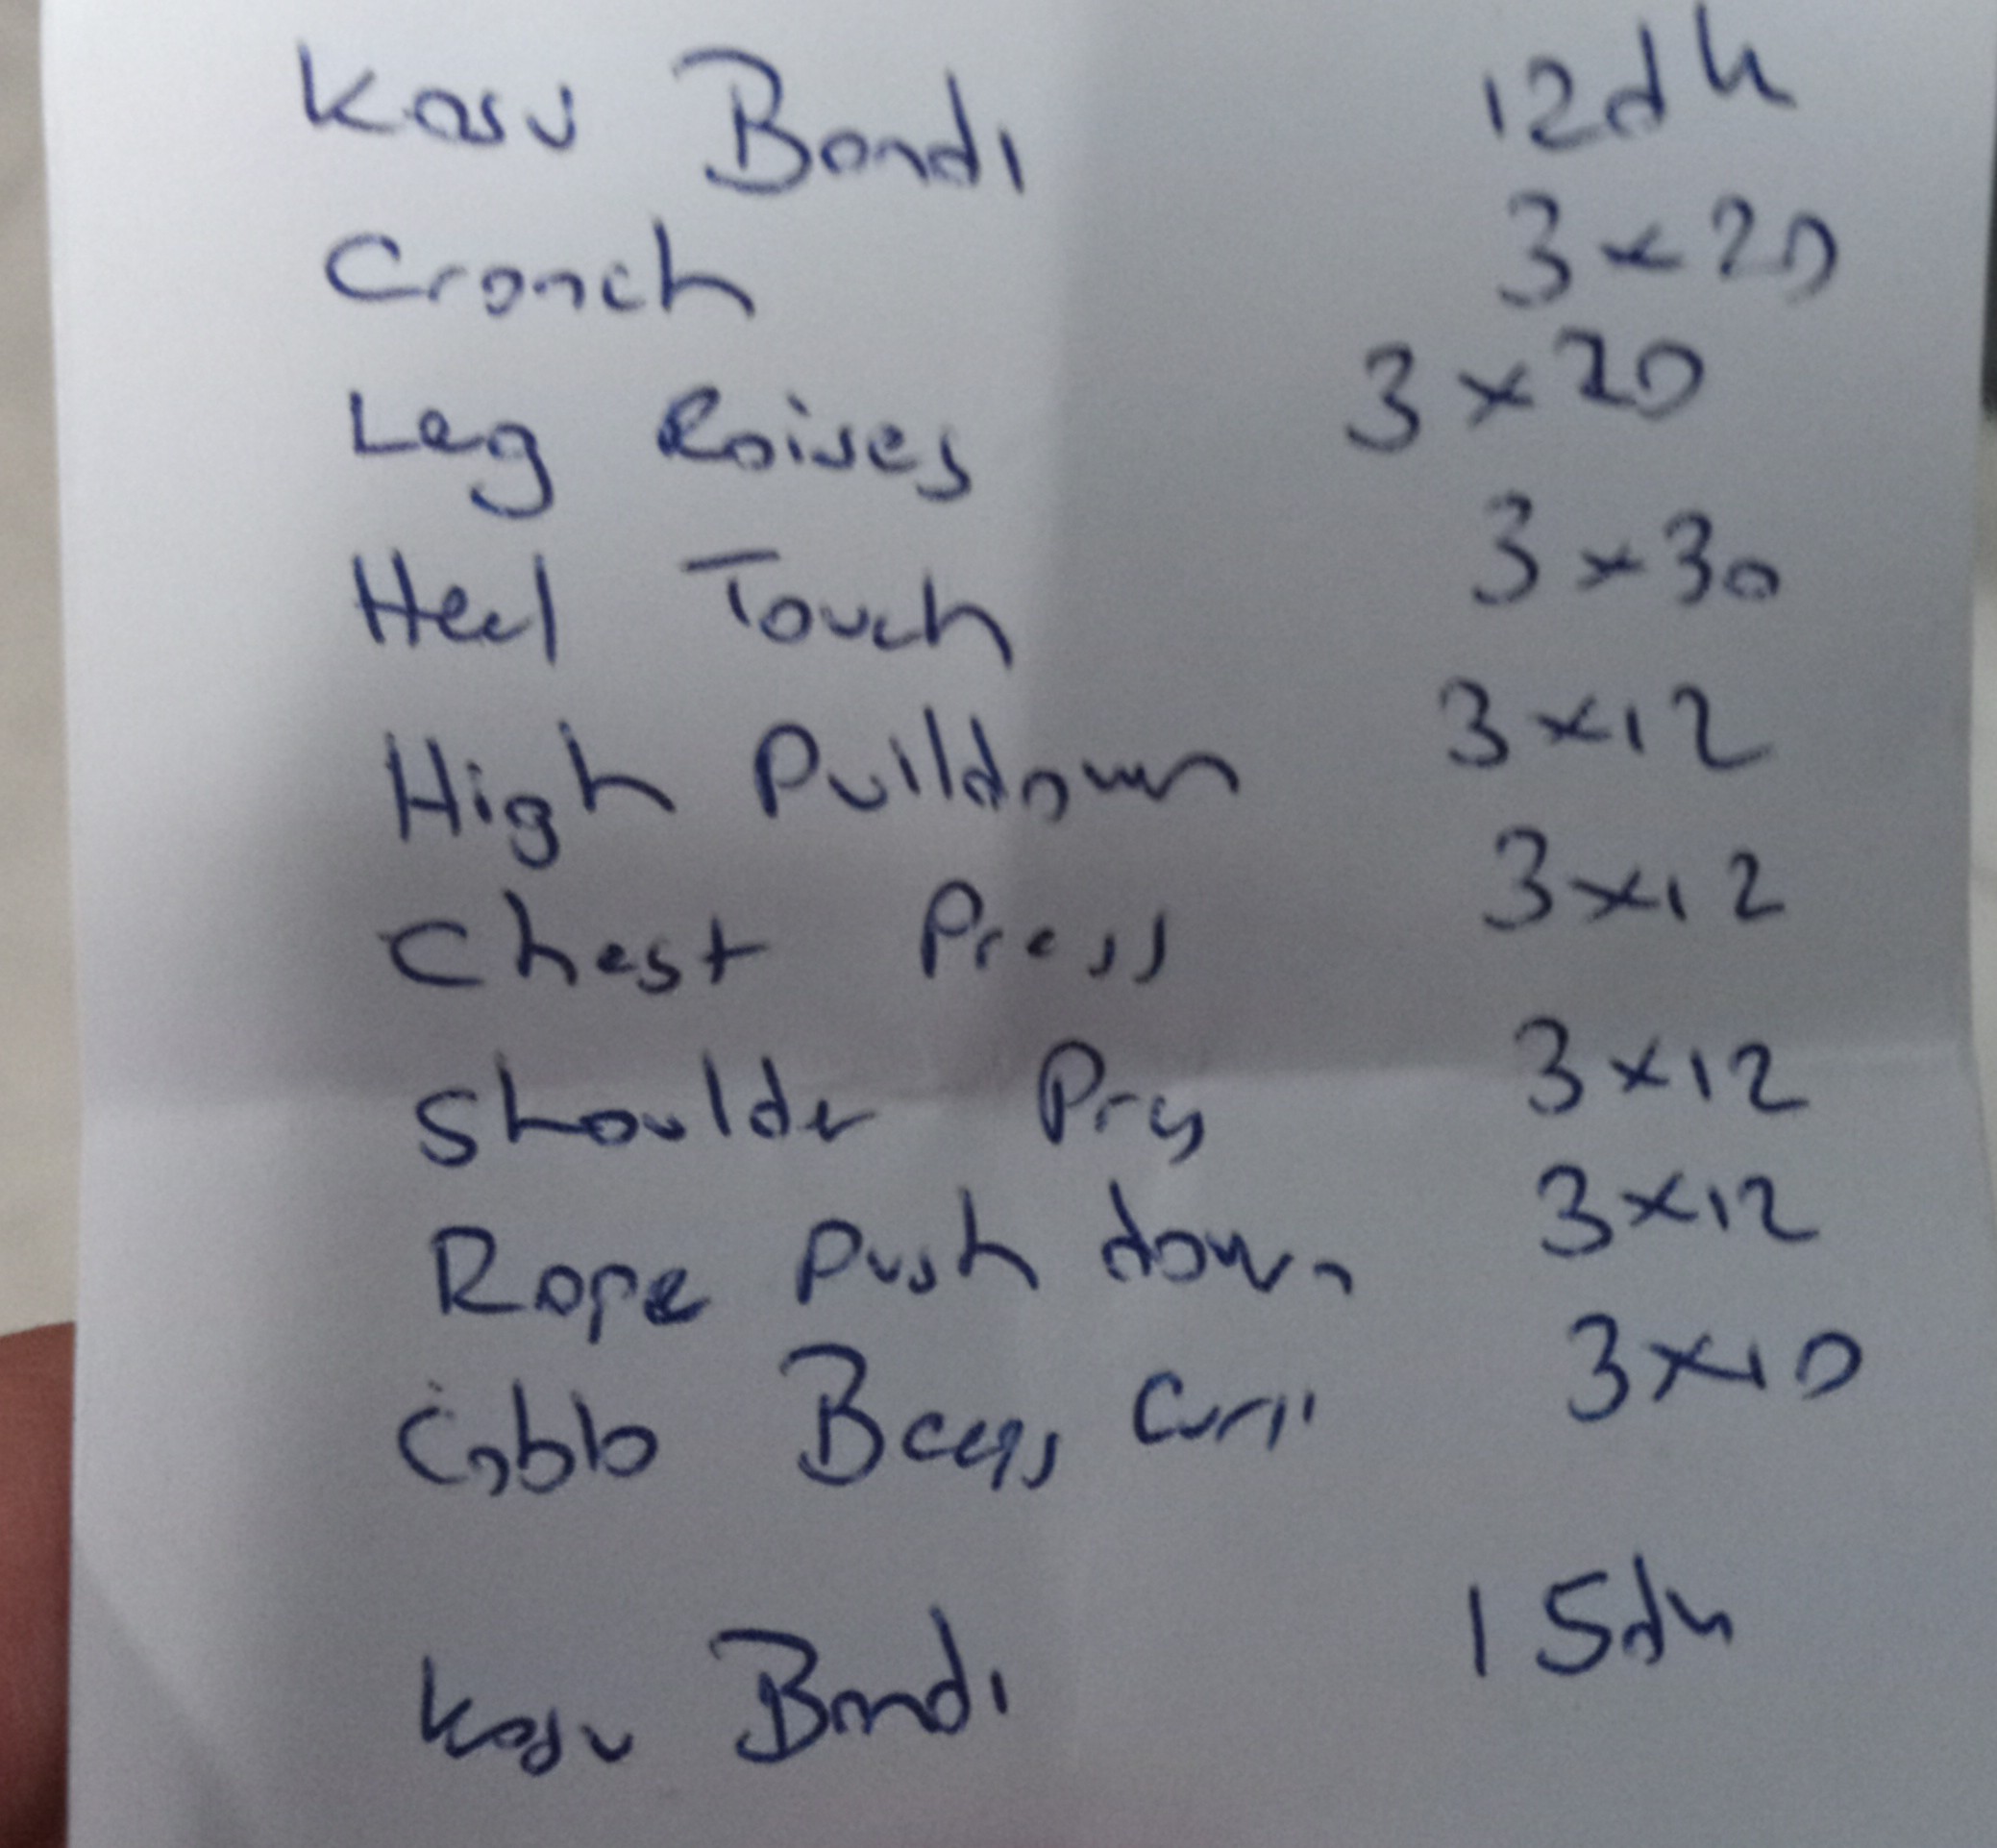 Kosu Bandı 12dk
Cranch 3x20
Leg Raises 3x20
Heel Touch 3x30
High Pulldown 3x12
Chest Press 3x12
Shoulder Press 3x12
Rope Push down 3x12
Biceps Curl 3x10
Kosu Bandı 15dk